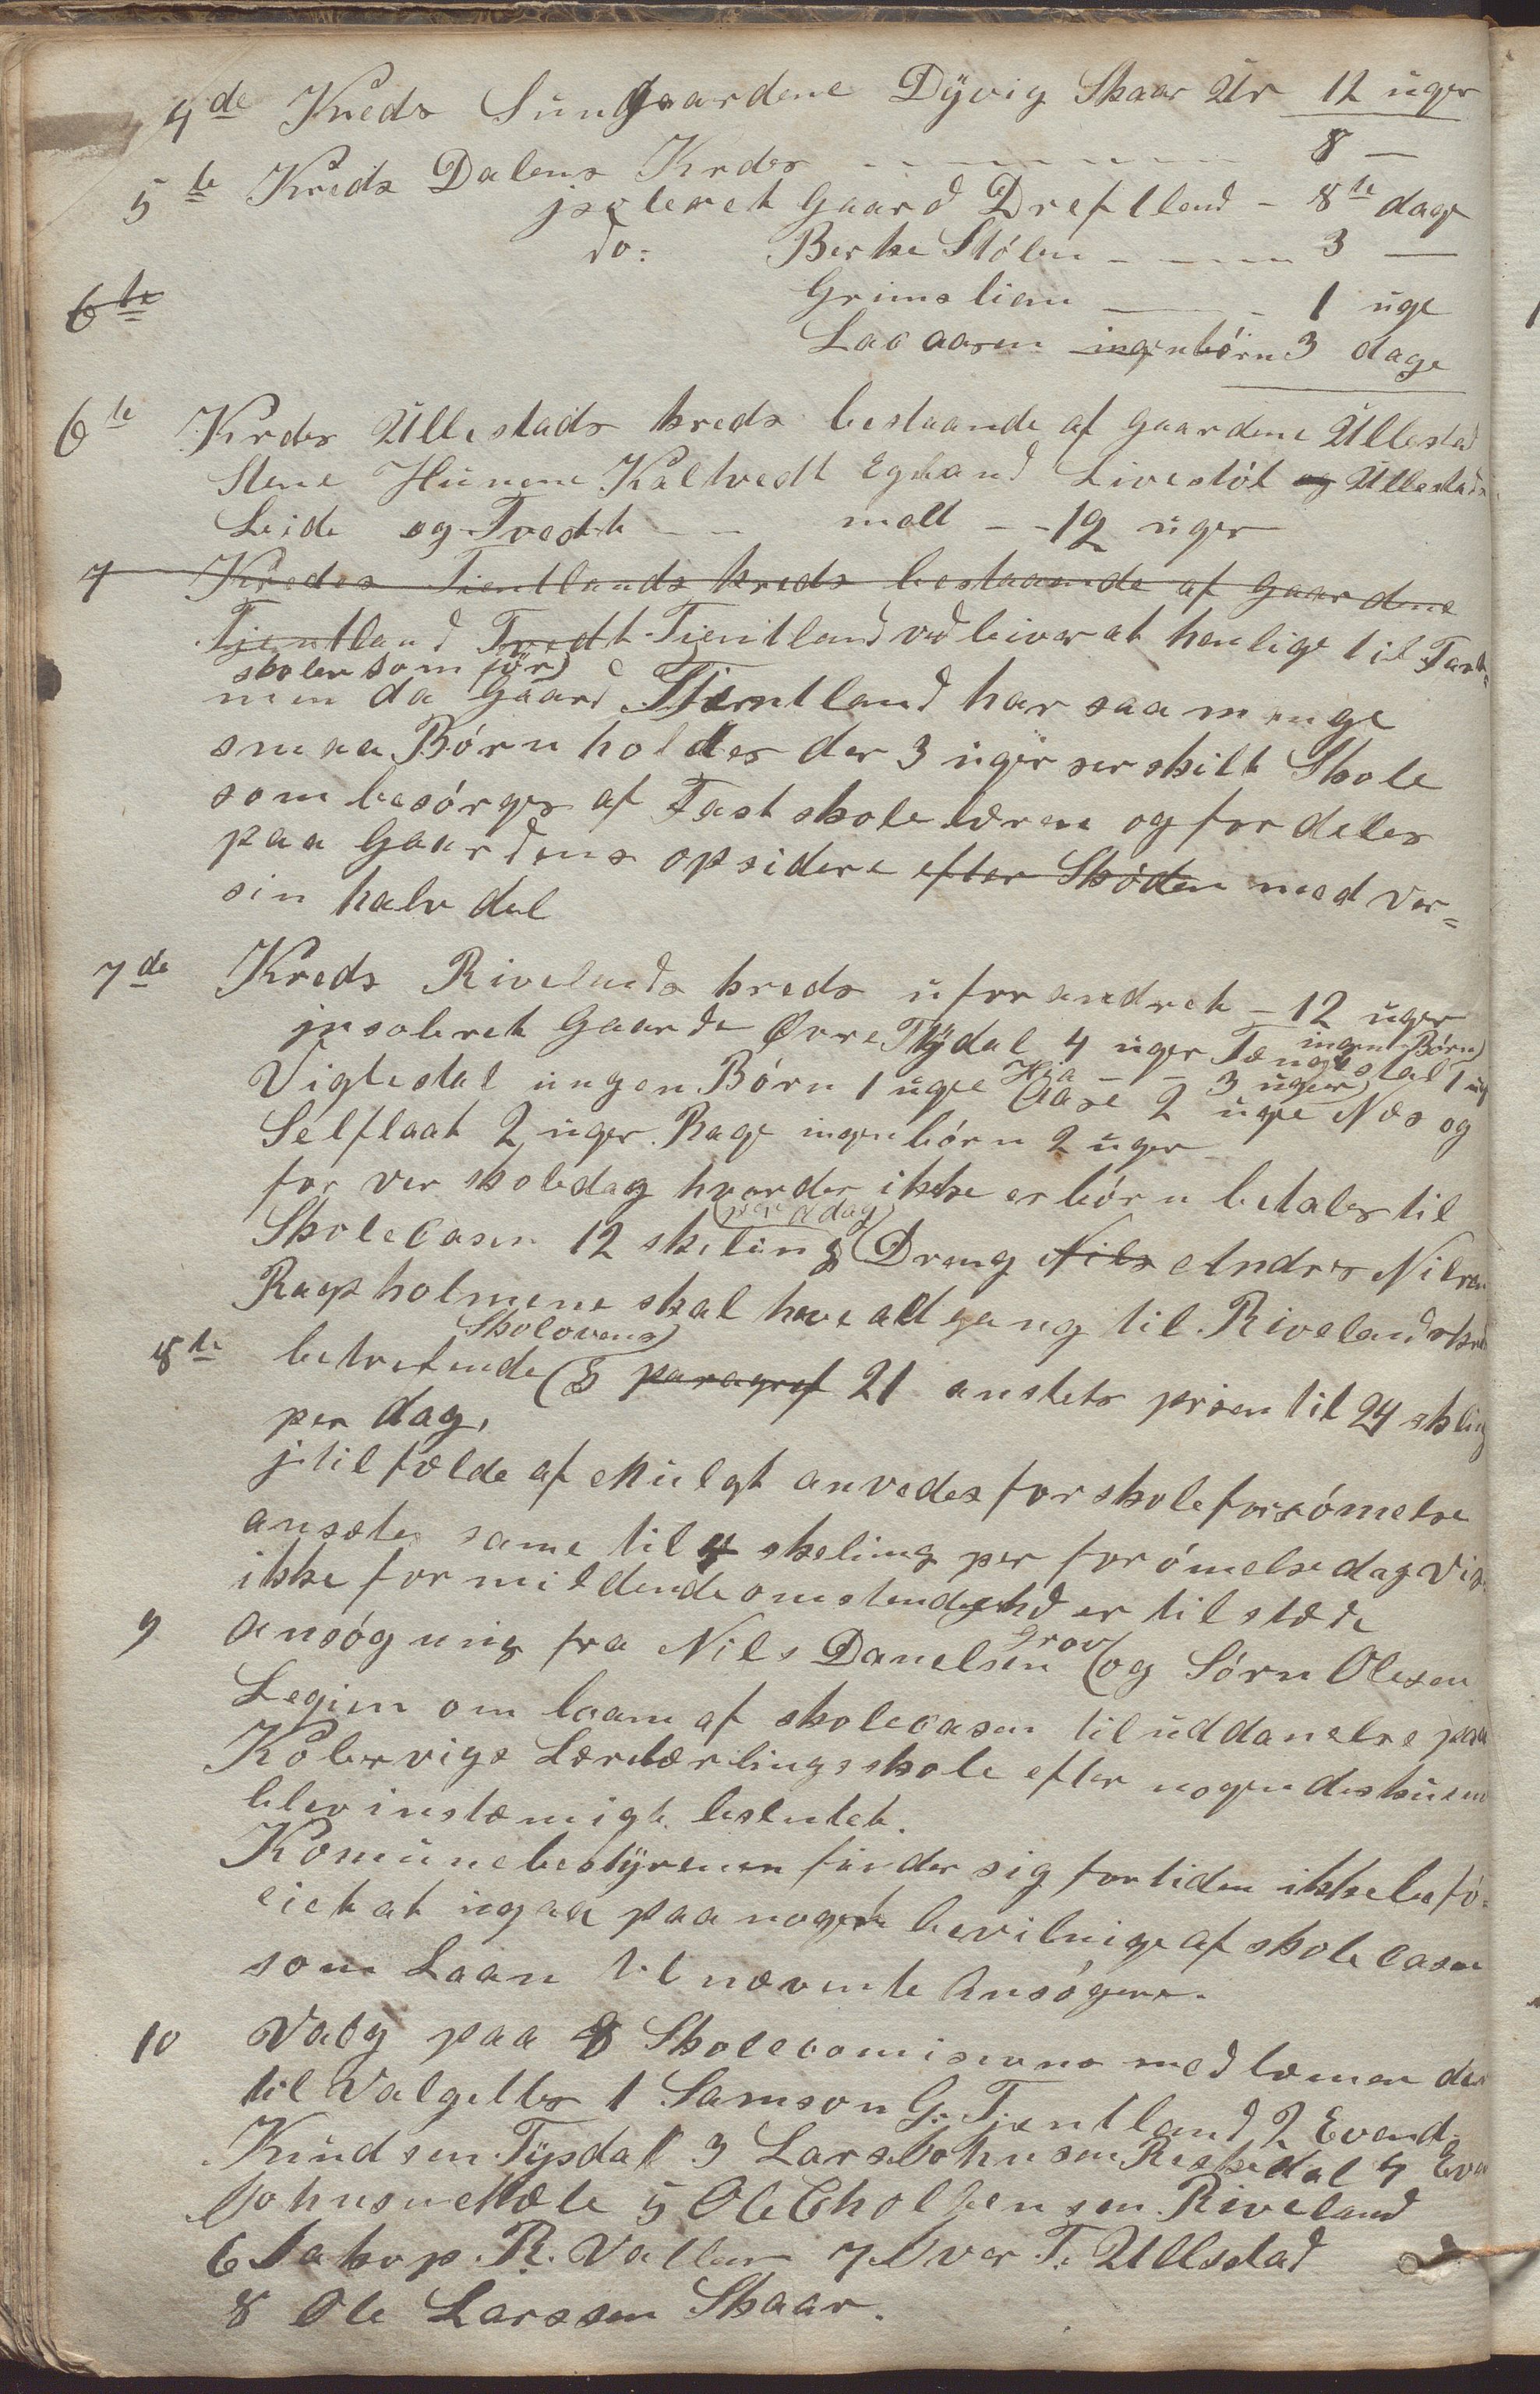 4de Kreds Sundgaardene Dÿvig Skaar Ur 12 uger
5te Kreds Dalens Krdes - - - - - 8 —
jsoleret Gaard Dreftland - 8te dage
do: Berke Stólen - - - - 3 —
6te Grimsliem — - 1 uge
Laaaasen ingenbórn 3 dage
6te Krdes Ullestads kreds bestaande af gaardene Ullestad
Stene Hunene Kaltvedt Egeland Livestól og Ullestads
Leide og Tvedt - - melt - - 12 uger
7 Kredes Tientlands kreds bestaaende af gaardene
Tjentland Tvedt Tientland vedbliver at henlige til Fast-
skolen som för)
men da Gaard Tjentland har saa mange
smaa Börn holdes der 3 uger serskilt Skole
som besórges af Fastskolelæren og fordeles
paa Gaardens opsidere efter Skóden med ver=
sin halvdel
7de Kreds Rivelands kreds uforandret - 12 uger
jnsoleret Gaarde Øvre Tÿdal 4 uger Tængestal 1 ug
ingen Börn)
Vigtestal ingen Börn 1 uge Aase 2 uge Nes og
Hia - - 3 uger)
Selflaat 2 uger. Rage ingenbórn 2 uger
for ver skoledag hvorder ikke er bórn betales til
Skolecasen 12 skeling Dreng Nils Andres Nilsen
per dag)
Rageholmene skal have adgang til Rivelandskreds
8te betrefende § paragref 21 ansttets prisen til 24 skling
Skolovens)
per dag,
j tilfælde af Mulgt anvedes for skoleforsómelse
ansæte same til 4 skeling per forómelsedag vis
ikke formildende omstendighed er tilstæde
9 Ansógning fra Nils Danelsen og Sórn Olesen
Grov)
Legien om laan af skolecasen til uddanelse paa
Kolbervigs Lærelærlingsskole efter nogen deskusen
blev instæmigt beslutet.
Komunebestÿrenen finder sig fortiden ikke befö-
iet at ingaa paa nogen bevilnige af skolecasen
som Laan til nævente Ansógere.
10 Valg paa 8 Skolecomisions medlæmer der
til Valgettes 1 Samson G. Tjentland 2 Evend
Knudsen Tÿsdal 3 Lars Johnsen Reskedal 4 Even
Johnsen Mæle 5 Ole Eholfsen Riveland
6 Jakop R. Vatlan 7 Iver T. Ullsdad
8 Ole Larssen Skaar.